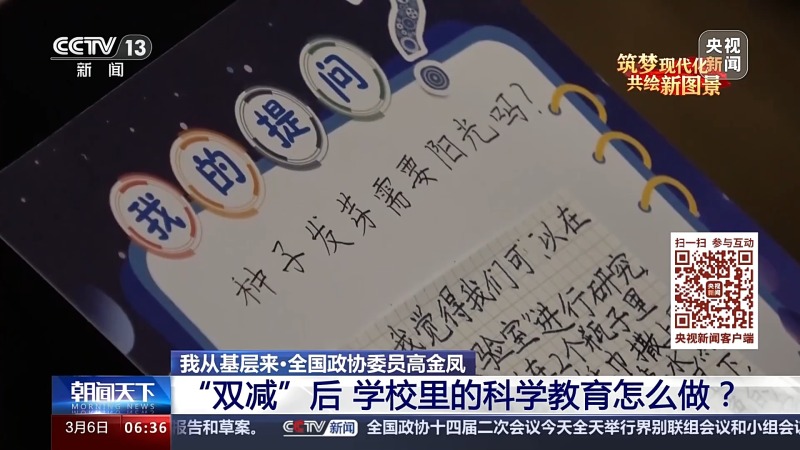 CCTV 13
新闻
央视新闻
筑梦现代化
共绘新图景
我的提问
种子发芽需要阳光吗?
我觉得我们可以在
验室”进行研究,
在2个瓶子里
扫一扫 参与互动
央视新闻
央视新闻客户端
我从基层来·全国政协委员高金凤
朝闻天下
MORNING NEWS
“双减”后 学校里的科学教育怎么做?
3月6日 06:36
报告和草案。 CCTV新闻 全国政协十四届二次会议今天全天举行界别联组会议和小组会